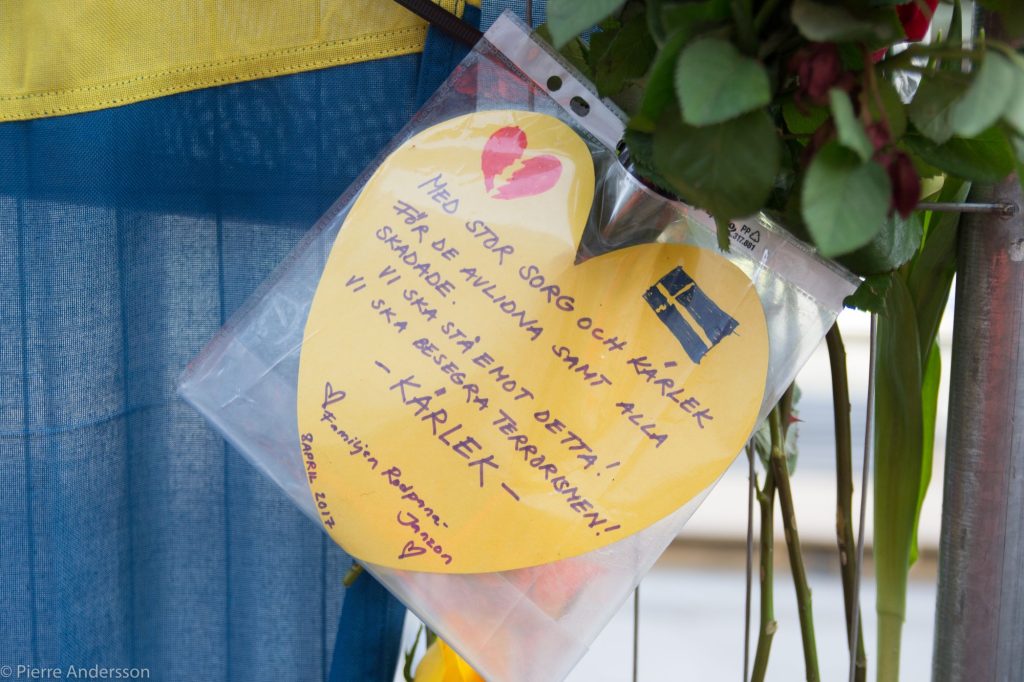 MED STOR SORG OCH KÄRLEK
FÖR DE AVLIDNA SAMT ALLA
SKADADE.
VI SKA STÅ EMOT DETTA!
VI SKA BESEGRA TERRORISMEN!
- KÄRLEK -
Familjen Rodpana-
Janzon
8 APRIL 2017
PP
© Pierre Andersson